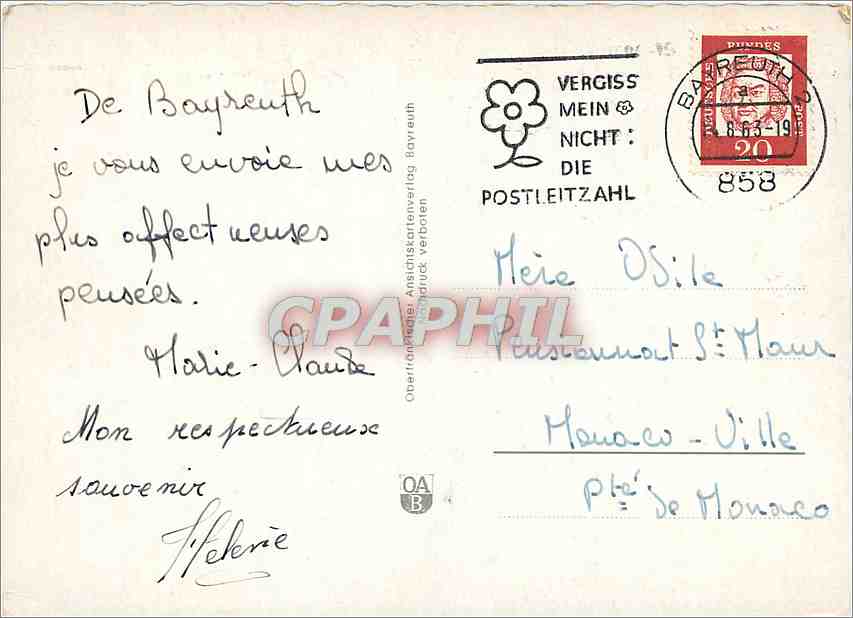 De Bayreuth
je vous envoie mes
plus affectueuses
pensées.
Marie-Claude
Mon respectueux
souvenir
Helene
Oberfränkischer Ansichtskartenverlag Bayreuth
Nachdruck verboten
OA
B
CPAPHIL
VERGISS
MEIN
NICHT:
DIE
POSTLEITZAHL
BAYREUTH 2
a
8.63-19
858
DEUTSCHE
BUNDES
POST
20
Mère Odile
Pensionnat St Maur
Monaco-Ville
Pté de Monaco